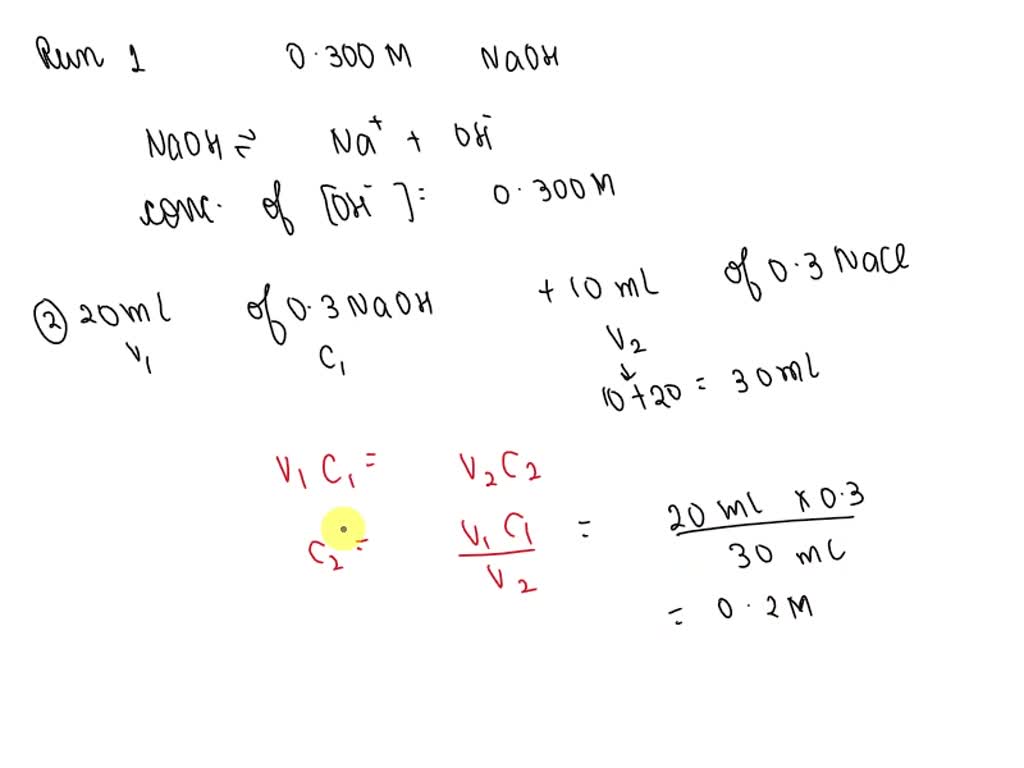 Run 1 0.300 M NaOH
NaOH ⇌ Na⁺ + OH⁻
conc. of [OH⁻] = 0.300 M
② 20 ml of 0.3 NaOH + 10 ml of 0.3 NaCl
V₁ C₁ V₂
↓
10 + 20 = 30 ml
V₁ C₁ = V₂ C₂
C₂ = V₁ C₁ / V₂ = 20 ml × 0.3 / 30 ml
= 0.2 M